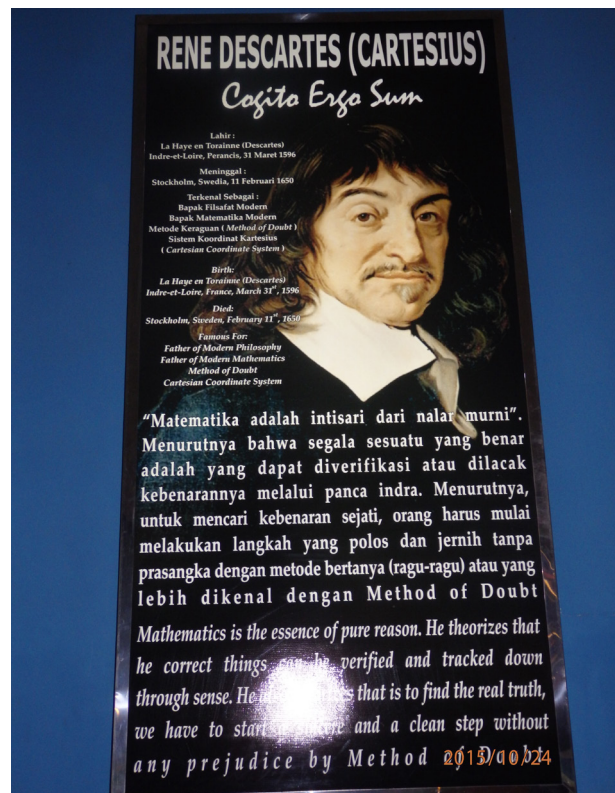 RENE DESCARTES (CARTESIUS)
Cogito Ergo Sum
Lahir :
La Haye en Torainne (Descartes)
Indre-et-Loire, Perancis, 31 Maret 1596
Meninggal :
Stockholm, Swedia, 11 Februari 1650
Terkenal Sebagai :
Bapak Filsafat Modern
Bapak Matematika Modern
Metode Keraguan ( Method of Doubt )
Sistem Koordinat Kartesius
( Cartesian Coordinate System )
Birth:
La Haye en Torainne (Descartes)
Indre-et-Loire, France, March 31st, 1596
Died:
Stockholm, Sweden, February 11st, 1650
Famous For:
Father of Modern Philosophy
Father of Modern Mathematics
Method of Doubt
Cartesian Coordinate System
“Matematika adalah intisari dari nalar murni”.
Menurutnya bahwa segala sesuatu yang benar
adalah yang dapat diverifikasi atau dilacak
kebenarannya melalui panca indra. Menurutnya,
untuk mencari kebenaran sejati, orang harus mulai
melakukan langkah yang polos dan jernih tanpa
prasangka dengan metode bertanya (ragu-ragu) atau yang
lebih dikenal dengan Method of Doubt
Mathematics is the essence of pure reason. He theorizes that
he correct things can be verified and tracked down
through sense. He that is to find the real truth,
we have to start and a clean step without
any prejudice by Method of Doubt
2015/10/24